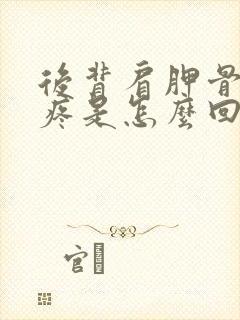 後背肩胛骨
疼是怎麼回
官